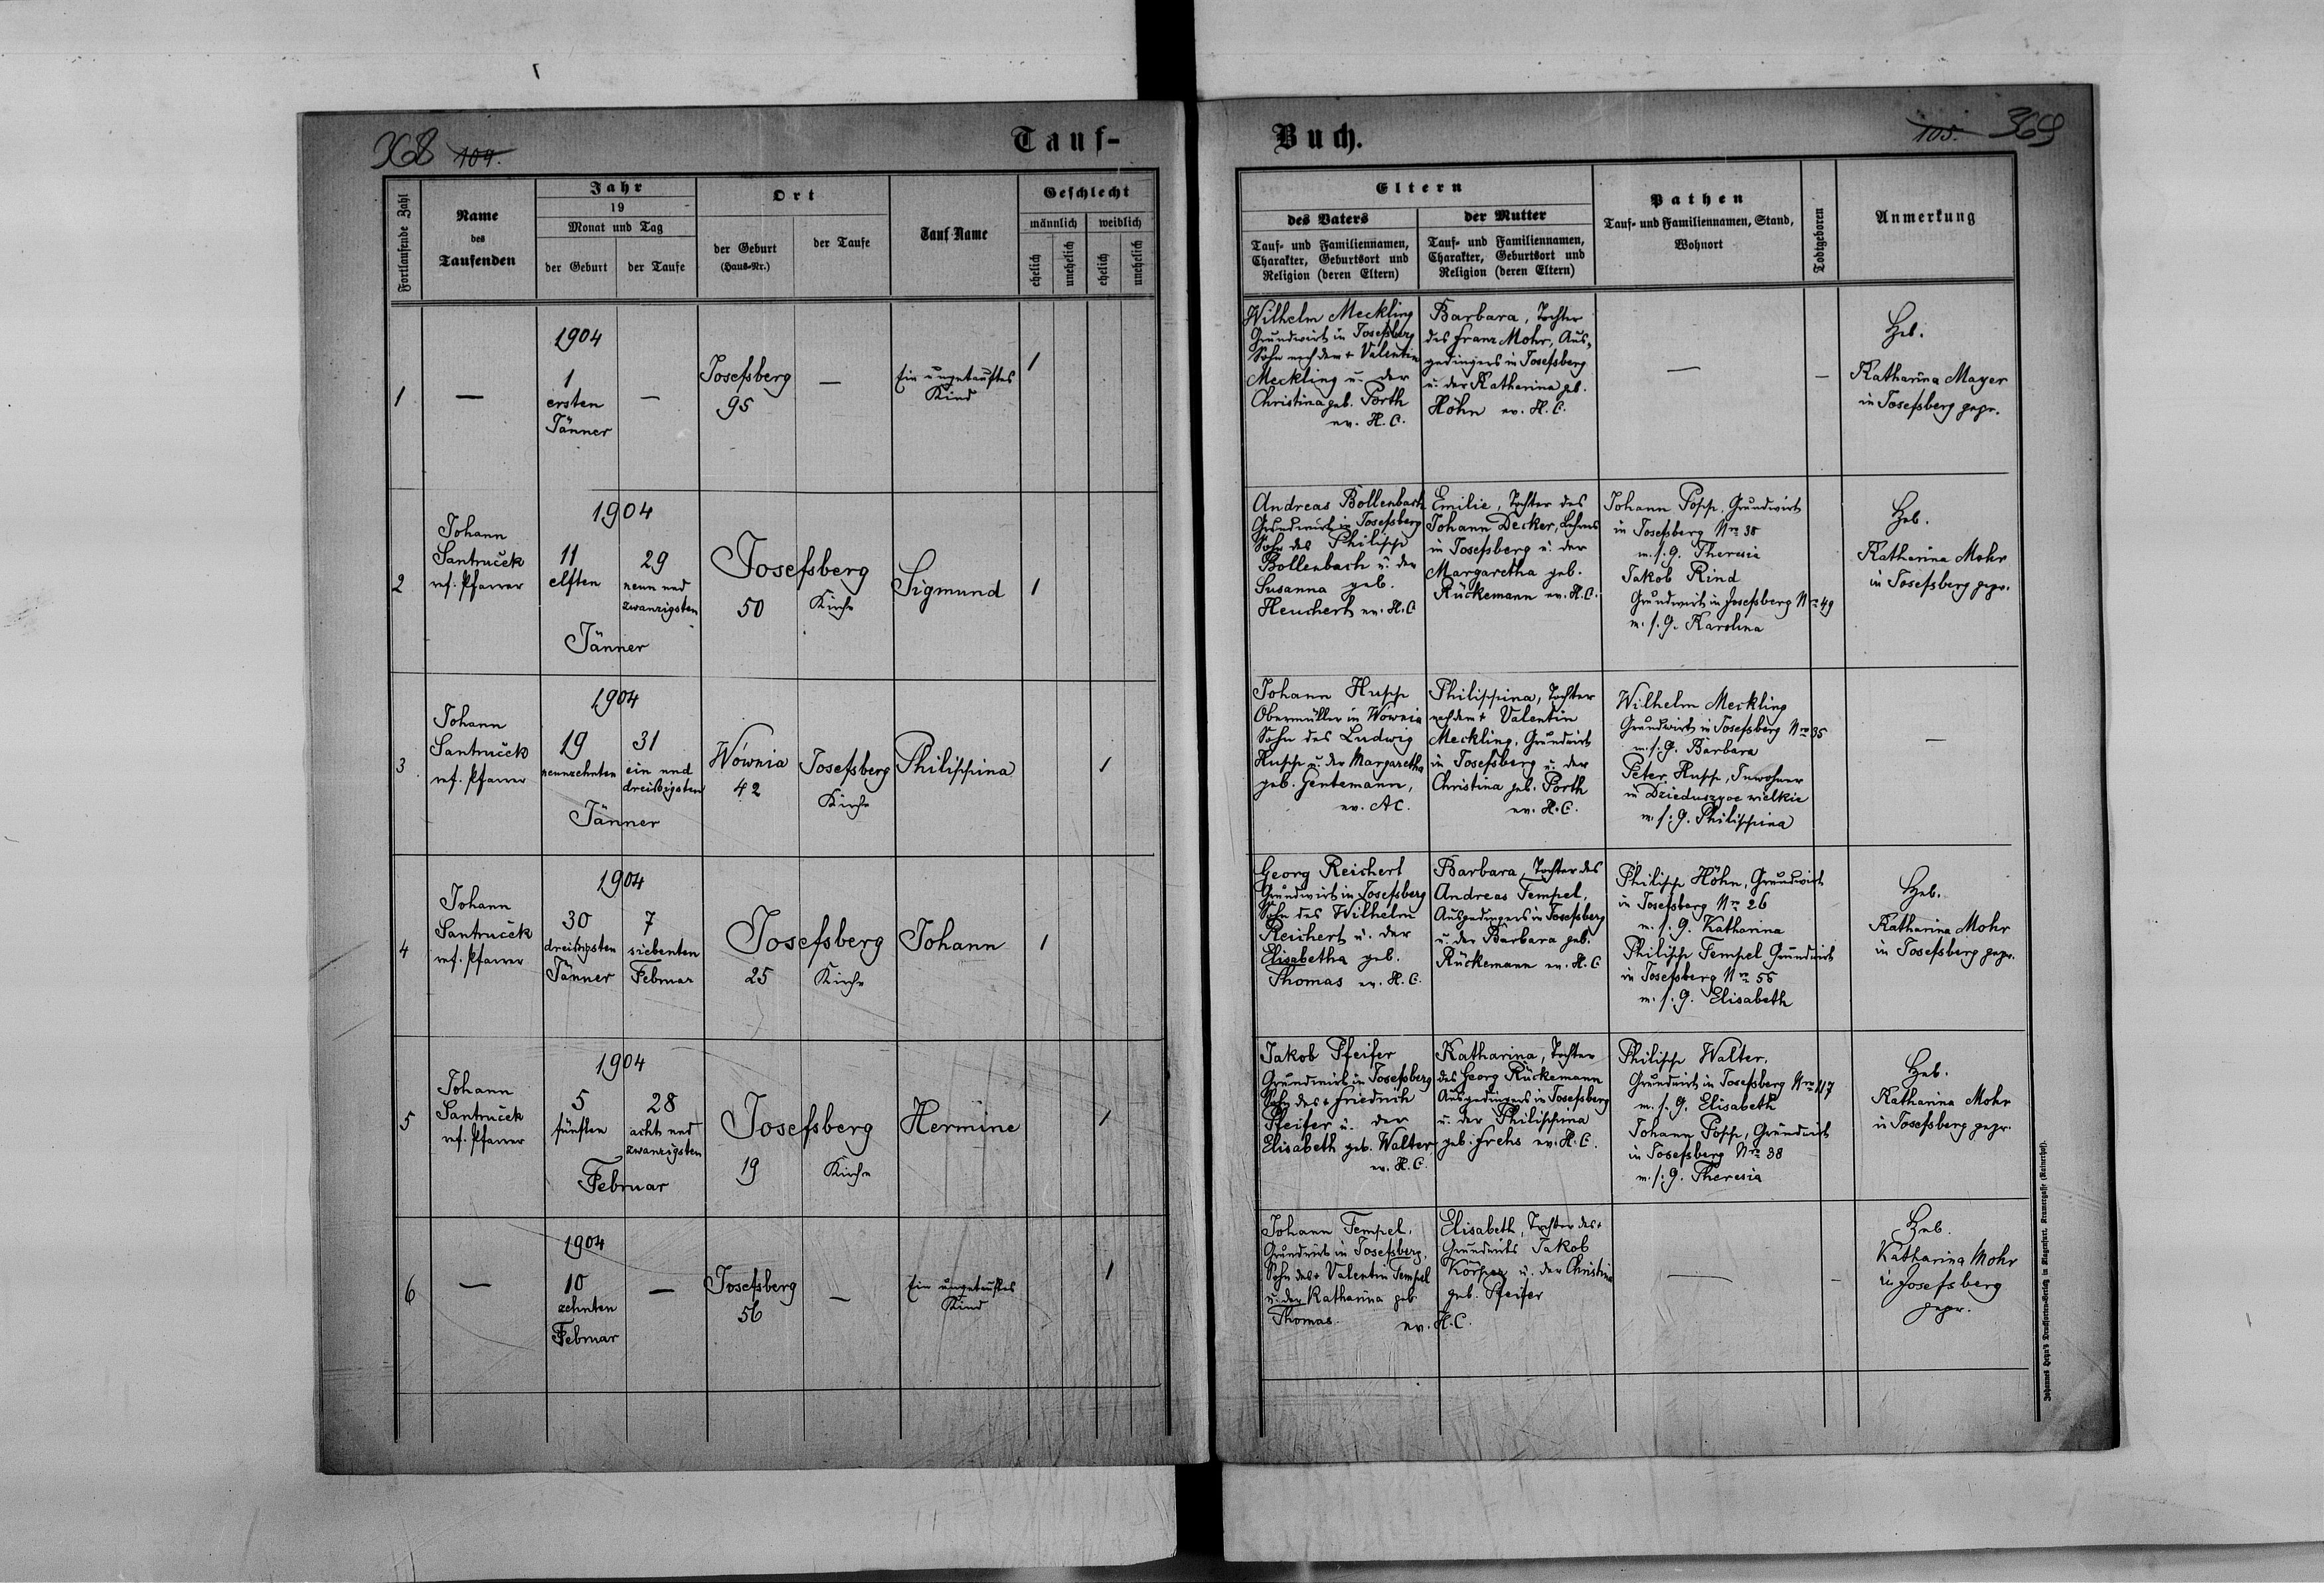 368 104.
Tauf-
Fortlaufende Zahl
Name
des
Taufenden
Jahr
19
Monat und Tag
der Geburt
der Taufe
Ort
der Geburt
(Haus-Nr.)
der Taufe
Tauf-Name
Geschlecht
männlich
weiblich
ehelich
unehelich
ehelich
unehelich
1
—
1904
1
ersten
Jänner
—
Josefsberg
95
—
Ein ungetauftes
Kind
1
2
Johann
Santruček
ref. Pfarrer
1904
11
elften
29
neun und
zwanzigsten
Jänner
Josefsberg
50
Kirche
Sigmund
1
3
Johann
Santruček
ref. Pfarrer
1904
19
neunzehnten
31
ein und
dreißigsten
Jänner
Wównia
42
Josefsberg
Kirche
Philippina
1
4
Johann
Santruček
ref. Pfarrer
1904
30
dreißigsten
Jänner
7
siebenten
Februar
Josefsberg
25
Kirche
Johann
1
5
Johann
Santruček
ref. Pfarrer
1904
5
fünften
28
acht und
zwanzigsten
Februar
Josefsberg
19
Kirche
Hermine
1
6
—
1904
10
zehnten
Februar
—
Josefsberg
56
—
Ein ungetauftes
Kind
1
Buch.
105. 369
Eltern
des Vaters
Tauf- und Familiennamen,
Charakter, Geburtsort und
Religion (deren Eltern)
der Mutter
Tauf- und Familiennamen,
Charakter, Geburtsort und
Religion (deren Eltern)
Pathen
Tauf- und Familiennamen, Stand,
Wohnort
Todtgeboren
Anmerkung
Wilhelm Meckling
Grundwirt in Josefsberg
Sohn nach dem + Valentin
Meckling u. der
Christina geb. Porth
ev. H. C.
Barbara, Tochter
des Franz Mohr, Aus-
gedingers in Josefsberg
u. der Katharina geb.
Höhn ev. H. C.
—
—
Heb.
Katharina Mayer
in Josefsberg gepr.
Andreas Bollenbach
Grundwirt in Josefsberg
Sohn des Philipp
Bollenbach u. der
Susanna geb.
Heuchert ev. H. C
Emilie, Tochter des
Johann Decker, Lehrers
in Josefsberg u. der
Margaretha geb.
Rückemann ev. H. C.
Johann Popp, Grundwirt
in Josefsberg Nro 38
m. s. G. Theresia
Jakob Rind
Grundwirt in Josefsberg Nro 49
m. s. G. Karolina
Heb.
Katharina Mohr
in Josefsberg gepr.
Johann Hupp
Obermüller in Wównia
Sohn des Ludwig
Hupp u. der Margaretha
geb. Gentemann,
ev. A C.
Philippina, Tochter
nach dem + Valentin
Meckling, Grundwirt
in Josefsberg u. der
Christina geb. Porth
ev. H. C.
Wilhelm Meckling
Grundwirt in Josefsberg Nro 35
m. s. G. Barbara
Peter Hupp, Inwohner
in Dzieduszyce wielkie
m. s. G. Philippina
—
Georg Reichert
Grundwirt in Josefsberg
Sohn des Wilhelm
Reichert u. der
Elisabetha geb.
Thomas ev. H. C.
Barbara, Tochter des
Andreas Tempel,
Ausgedingers in Josefsberg
u. der Barbara geb.
Rückemann ev. H. C
Philipp Höhn, Grundwirt
in Josefsberg Nro 26
m. s. G. Katharina
Philipp Tempel Grundwirt
in Josefsberg Nro 55
m. s. G. Elisabeth
Heb.
Katharina Mohr
in Josefsberg gepr.
Jakob Pfeifer
Grundwirt in Josefsberg
Sohn des + Friedrich
Pfeifer u. der
Elisabeth geb. Walter,
ev. H. C.
Katharina, Tochter
des Georg Rückemann
Ausgedingers in Josefsberg
u. der Philippina
geb. Frehs ev. H. C.
Philipp Walter,
Grundwirt in Josefsberg Nro 117
m. s. G. Elisabeth
Johann Popp, Grundwirt
in Josefsberg Nro 38
m. s. G. Theresia
Heb.
Katharina Mohr
in Josefsberg gepr.
Johann Tempel,
Grundwirt in Josefsberg,
Sohn des + Valentin Tempel
u. der Katharina geb.
Thomas. ev. H. C.
Elisabeth, Tochter des +
Grundwirts Jakob
Körper u. der Christina
geb. Pfeifer
—
—
Heb.
Katharina Mohr
in Josefsberg
gepr.
Johannes Heyn's Drucksorten-Verlag in Klagenfurt, Kramergasse (Rainerhof).